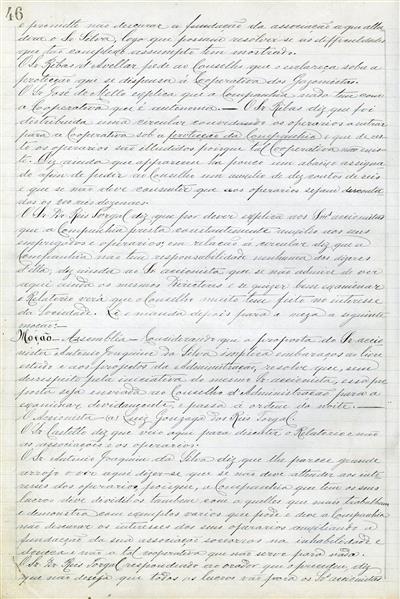 46
e promette não descurar a fundação da associação a que allu
dira o Sr. Silva, logo que possam resolver-se as difficuldades
que tão complexo assumpto tem mostrado.
O Sr. Ribas pede ao Conselho que o esclareça sobre a
protecção que se dispensa á Cooperativa dos Gazomistas.
O Sr. José de Mello explica que a Companhia nada tem com
a Cooperativa que é autonoma. — O Sr. Ribas diz que foi
distribuida uma circular convidando os operarios a entrar
para a Cooperativa sob a protecção da Companhia e que d'es
te os operarios são illudidos porque tal Cooperativa não exis
te. Diz ainda que appareceu ha pouco um abaixo assigna
do afim de pedir ao Conselho um auxilio de dez contos de reis
e que se não deve consentir que aos operarios sejam desconta
dos os
O Sr. Dr. Reis Torgal diz que por dever explica aos Snrs. accionistas
que a Companhia presta constantemente auxilio aos seus
empregados e operarios; em relação á circular diz que a
Companhia não tem responsabilidade nenhuma dos dizeres
d'ella, diz ainda ao Sr. accionista que se não admire de ver
aqui ainda os mesmos Directores e se quizer bem examinar
o Relatorio verá que o Conselho muito tem feito no interesse
da Sociedade. Lê e manda depois para a meza a seguinte
moção:
Moção — Assemblêa — Considerando que a proposta do Sr. accio
nista Antonio Joaquim da Silva implica embaraços ao livre
estudo e aos projectos da Administração, resolve que, sem
desrespeito pela iniciativa do mesmo Sr. accionista, essa pro
posta seja enviada ao Conselho d'Administração para a
examinar devidamente, e passa á ordem da noite. —
O Accionista (a) Luiz Gonzaga dos Reis Torgal.
O Sr. Castello diz que veio aqui para discutir o Relatorio e não
as associações e os operarios.
O Sr. Antonio Joaquim da Silva diz que lhe parece grande
arrojo o vir aqui dizer-se que se não deve attender aos inte
resses dos operarios, porque, a Companhia que tem os seus
lucros deve dividil-os tambem com aquelles que mais trabalham
e demonstra com exemplos varios que póde e deve a Companhia
não descurar os interesses dos seus operarios auxiliando a
fundação da sua associação soccorros na inhabilidade e
doença e não a tal cooperativa que não serve para nada.
O Sr. Dr. Reis Torgal respondendo ao orador que o precedeu, diz
que não deseja que todos os lucros vão para os Srs. accionistas